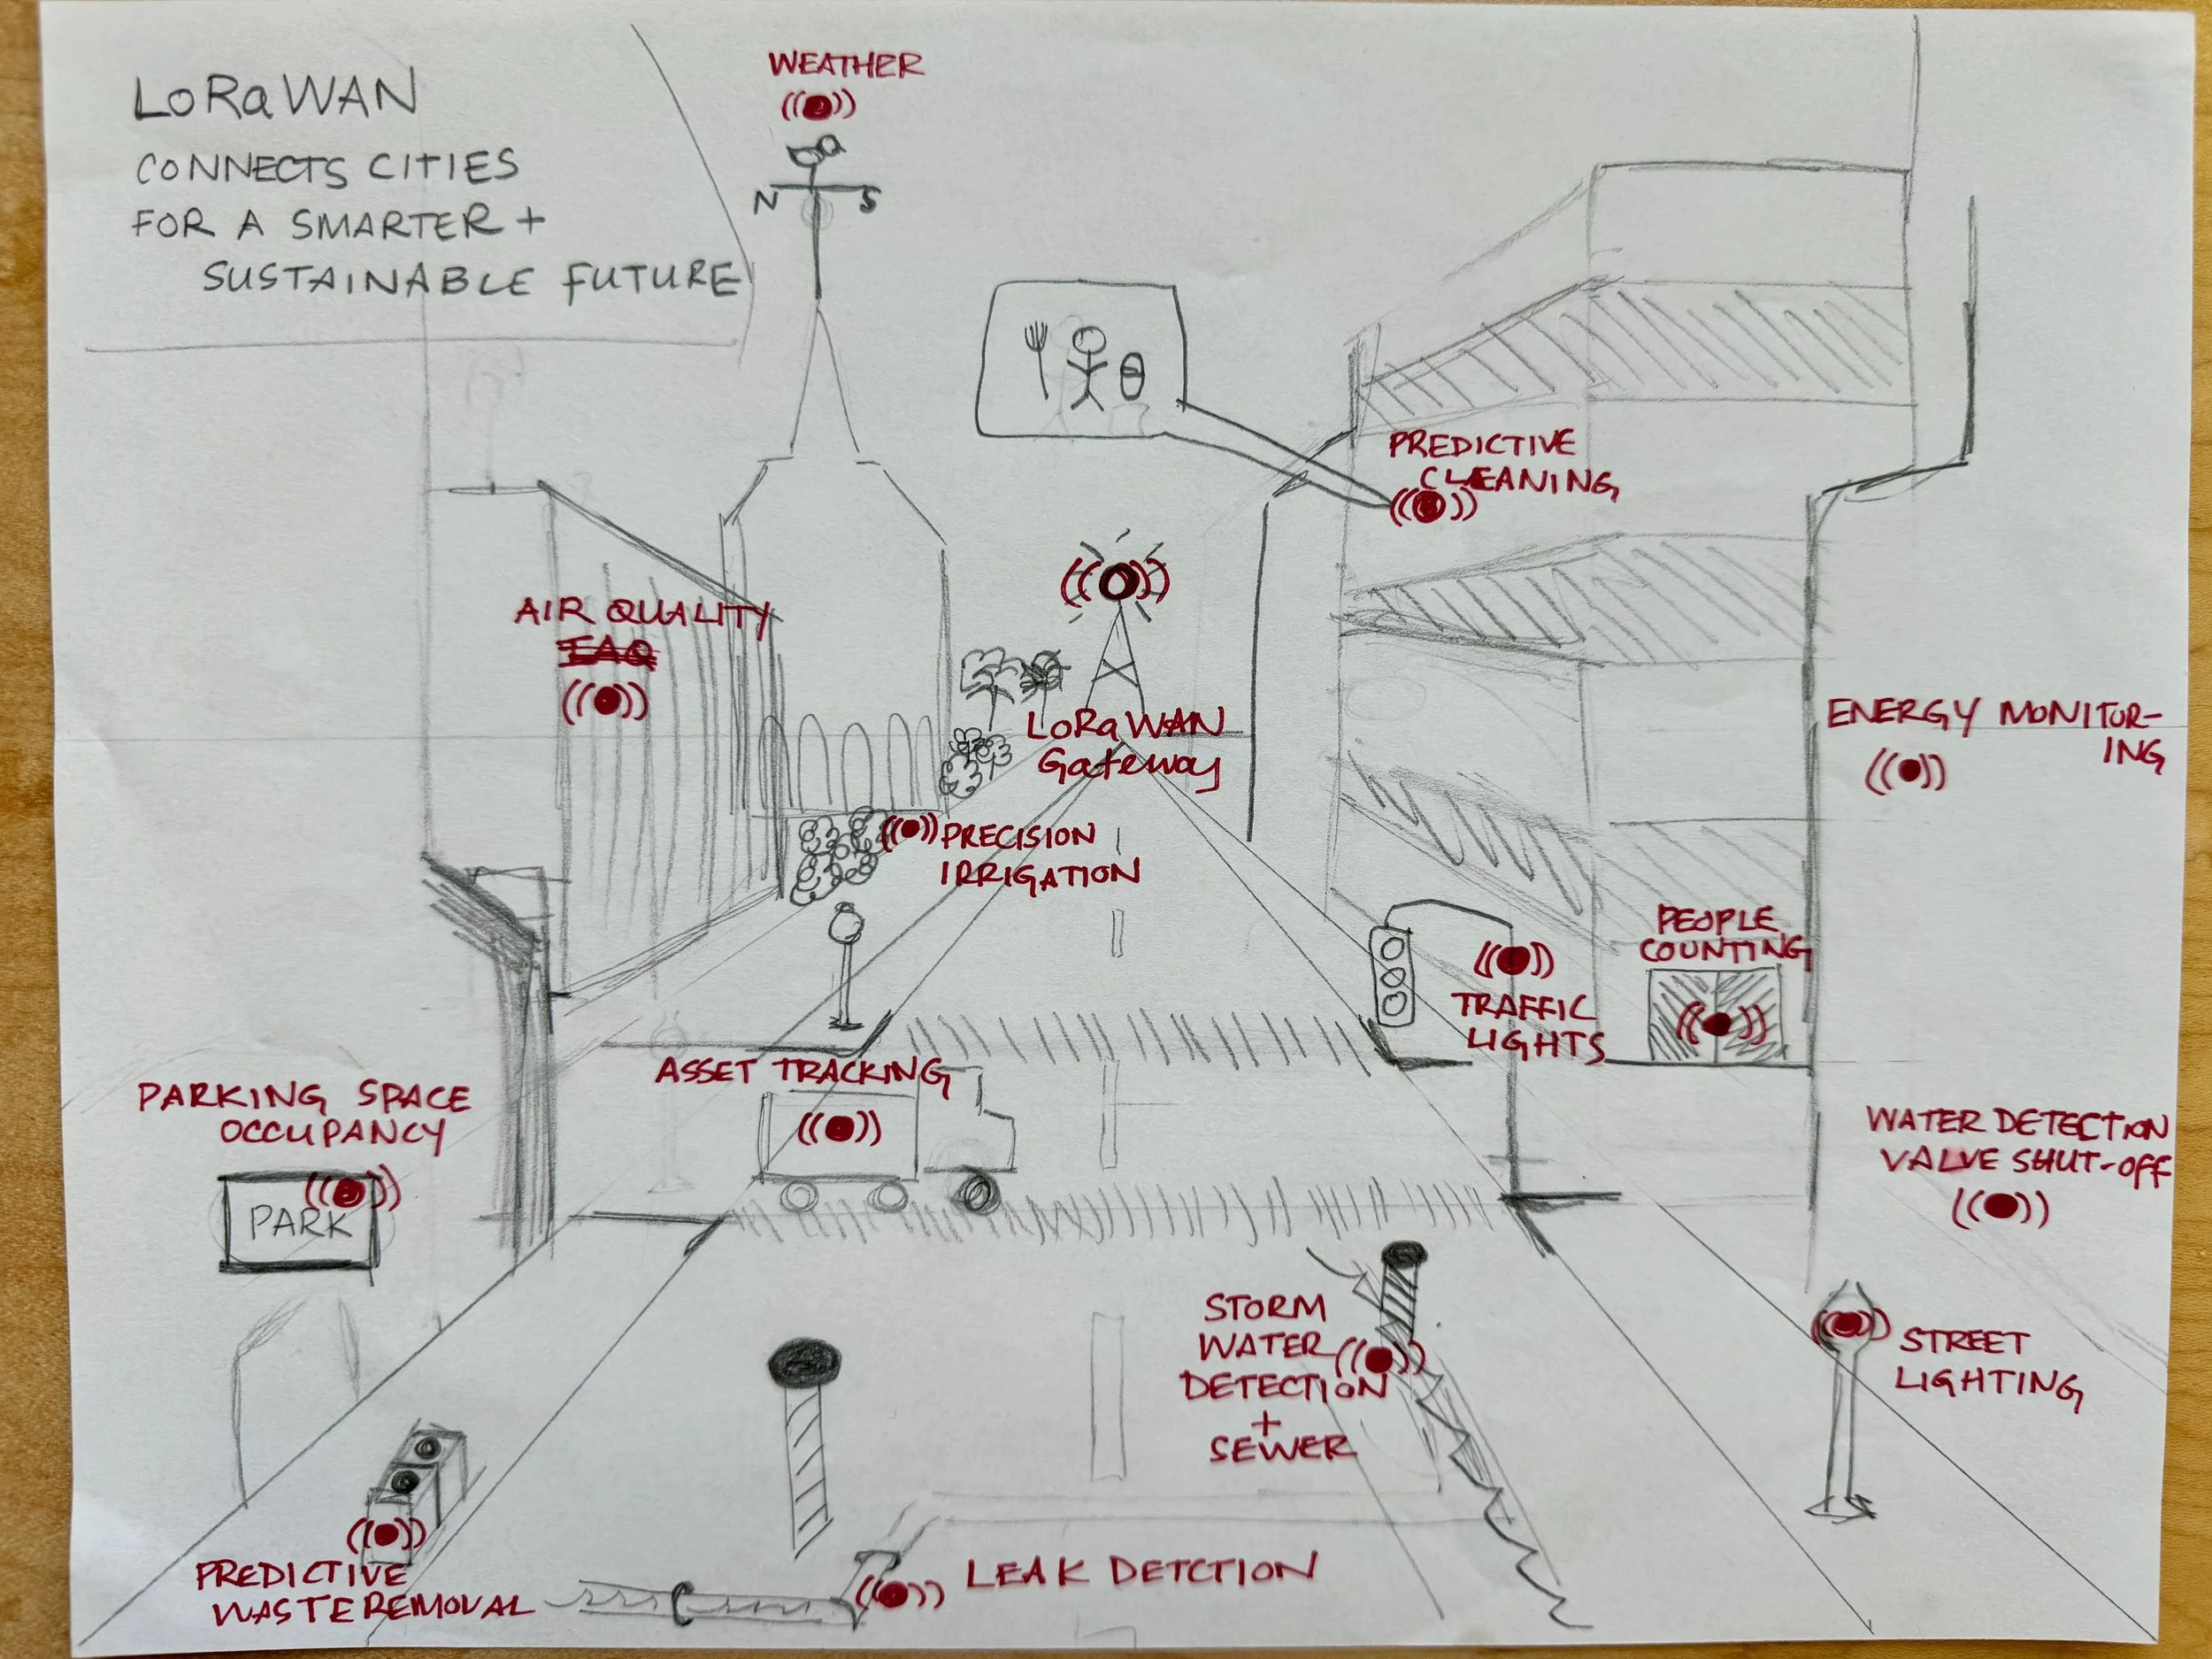 LoRaWAN
CONNECTS CITIES
FOR A SMARTER +
SUSTAINABLE FUTURE
WEATHER
N S
PREDICTIVE
CLEANING
AIR QUALITY
IAQ
LoRaWAN
Gateway
ENERGY MONITOR-
ING
PRECISION
IRRIGATION
PEOPLE
COUNTING
TRAFFIC
LIGHTS
ASSET TRACKING
PARKING SPACE
OCCUPANCY
PARK
WATER DETECTION
VALVE SHUT-OFF
STORM
WATER
DETECTION
+
SEWER
STREET
LIGHTING
PREDICTIVE
WASTE REMOVAL
LEAK DETCTION